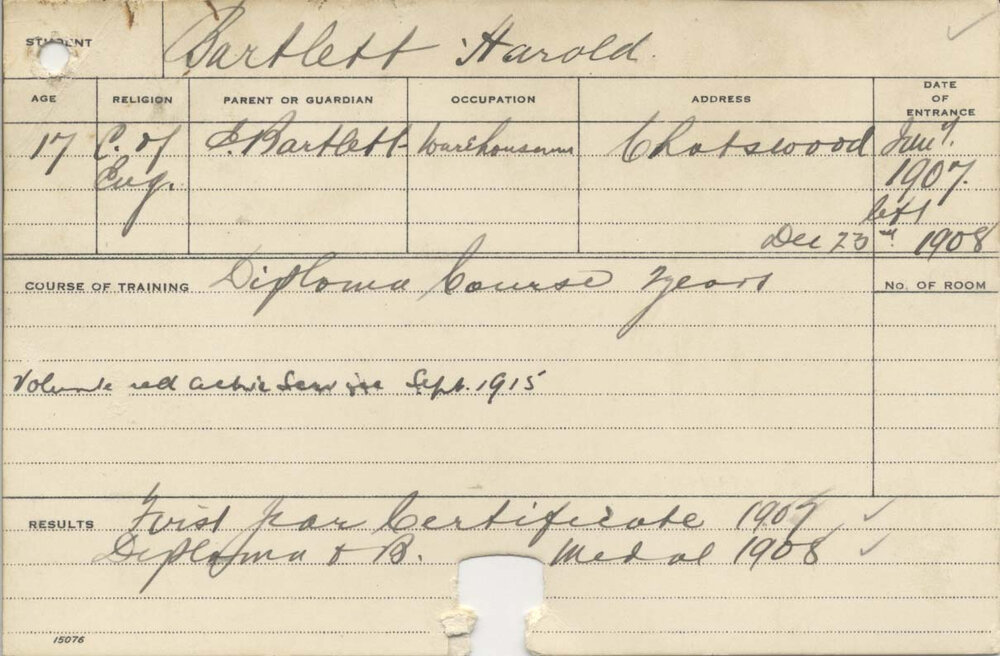 STUDENT Bartlett Harold.
AGE RELIGION PARENT OR GUARDIAN OCCUPATION ADDRESS DATE OF ENTRANCE
17 C. of E Bartlett Warehouseman Chatswood Jany.
Eng. 1907.
left
Dec 23rd 1908
COURSE OF TRAINING Diploma Course 2 years No. OF ROOM
Volunteered active Service Sept. 1915
RESULTS First year Certificate 1907
Diploma & B. Medal 1908
15076